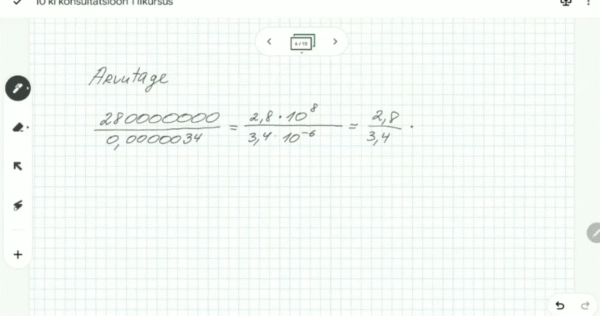 10 kl konsultatsioon 1 liikursus
6 / 10
Arvutage
280000000 / 0,0000034 = 2,8 · 10⁸ / 3,4 · 10⁻⁶ = 2,8 / 3,4 ·